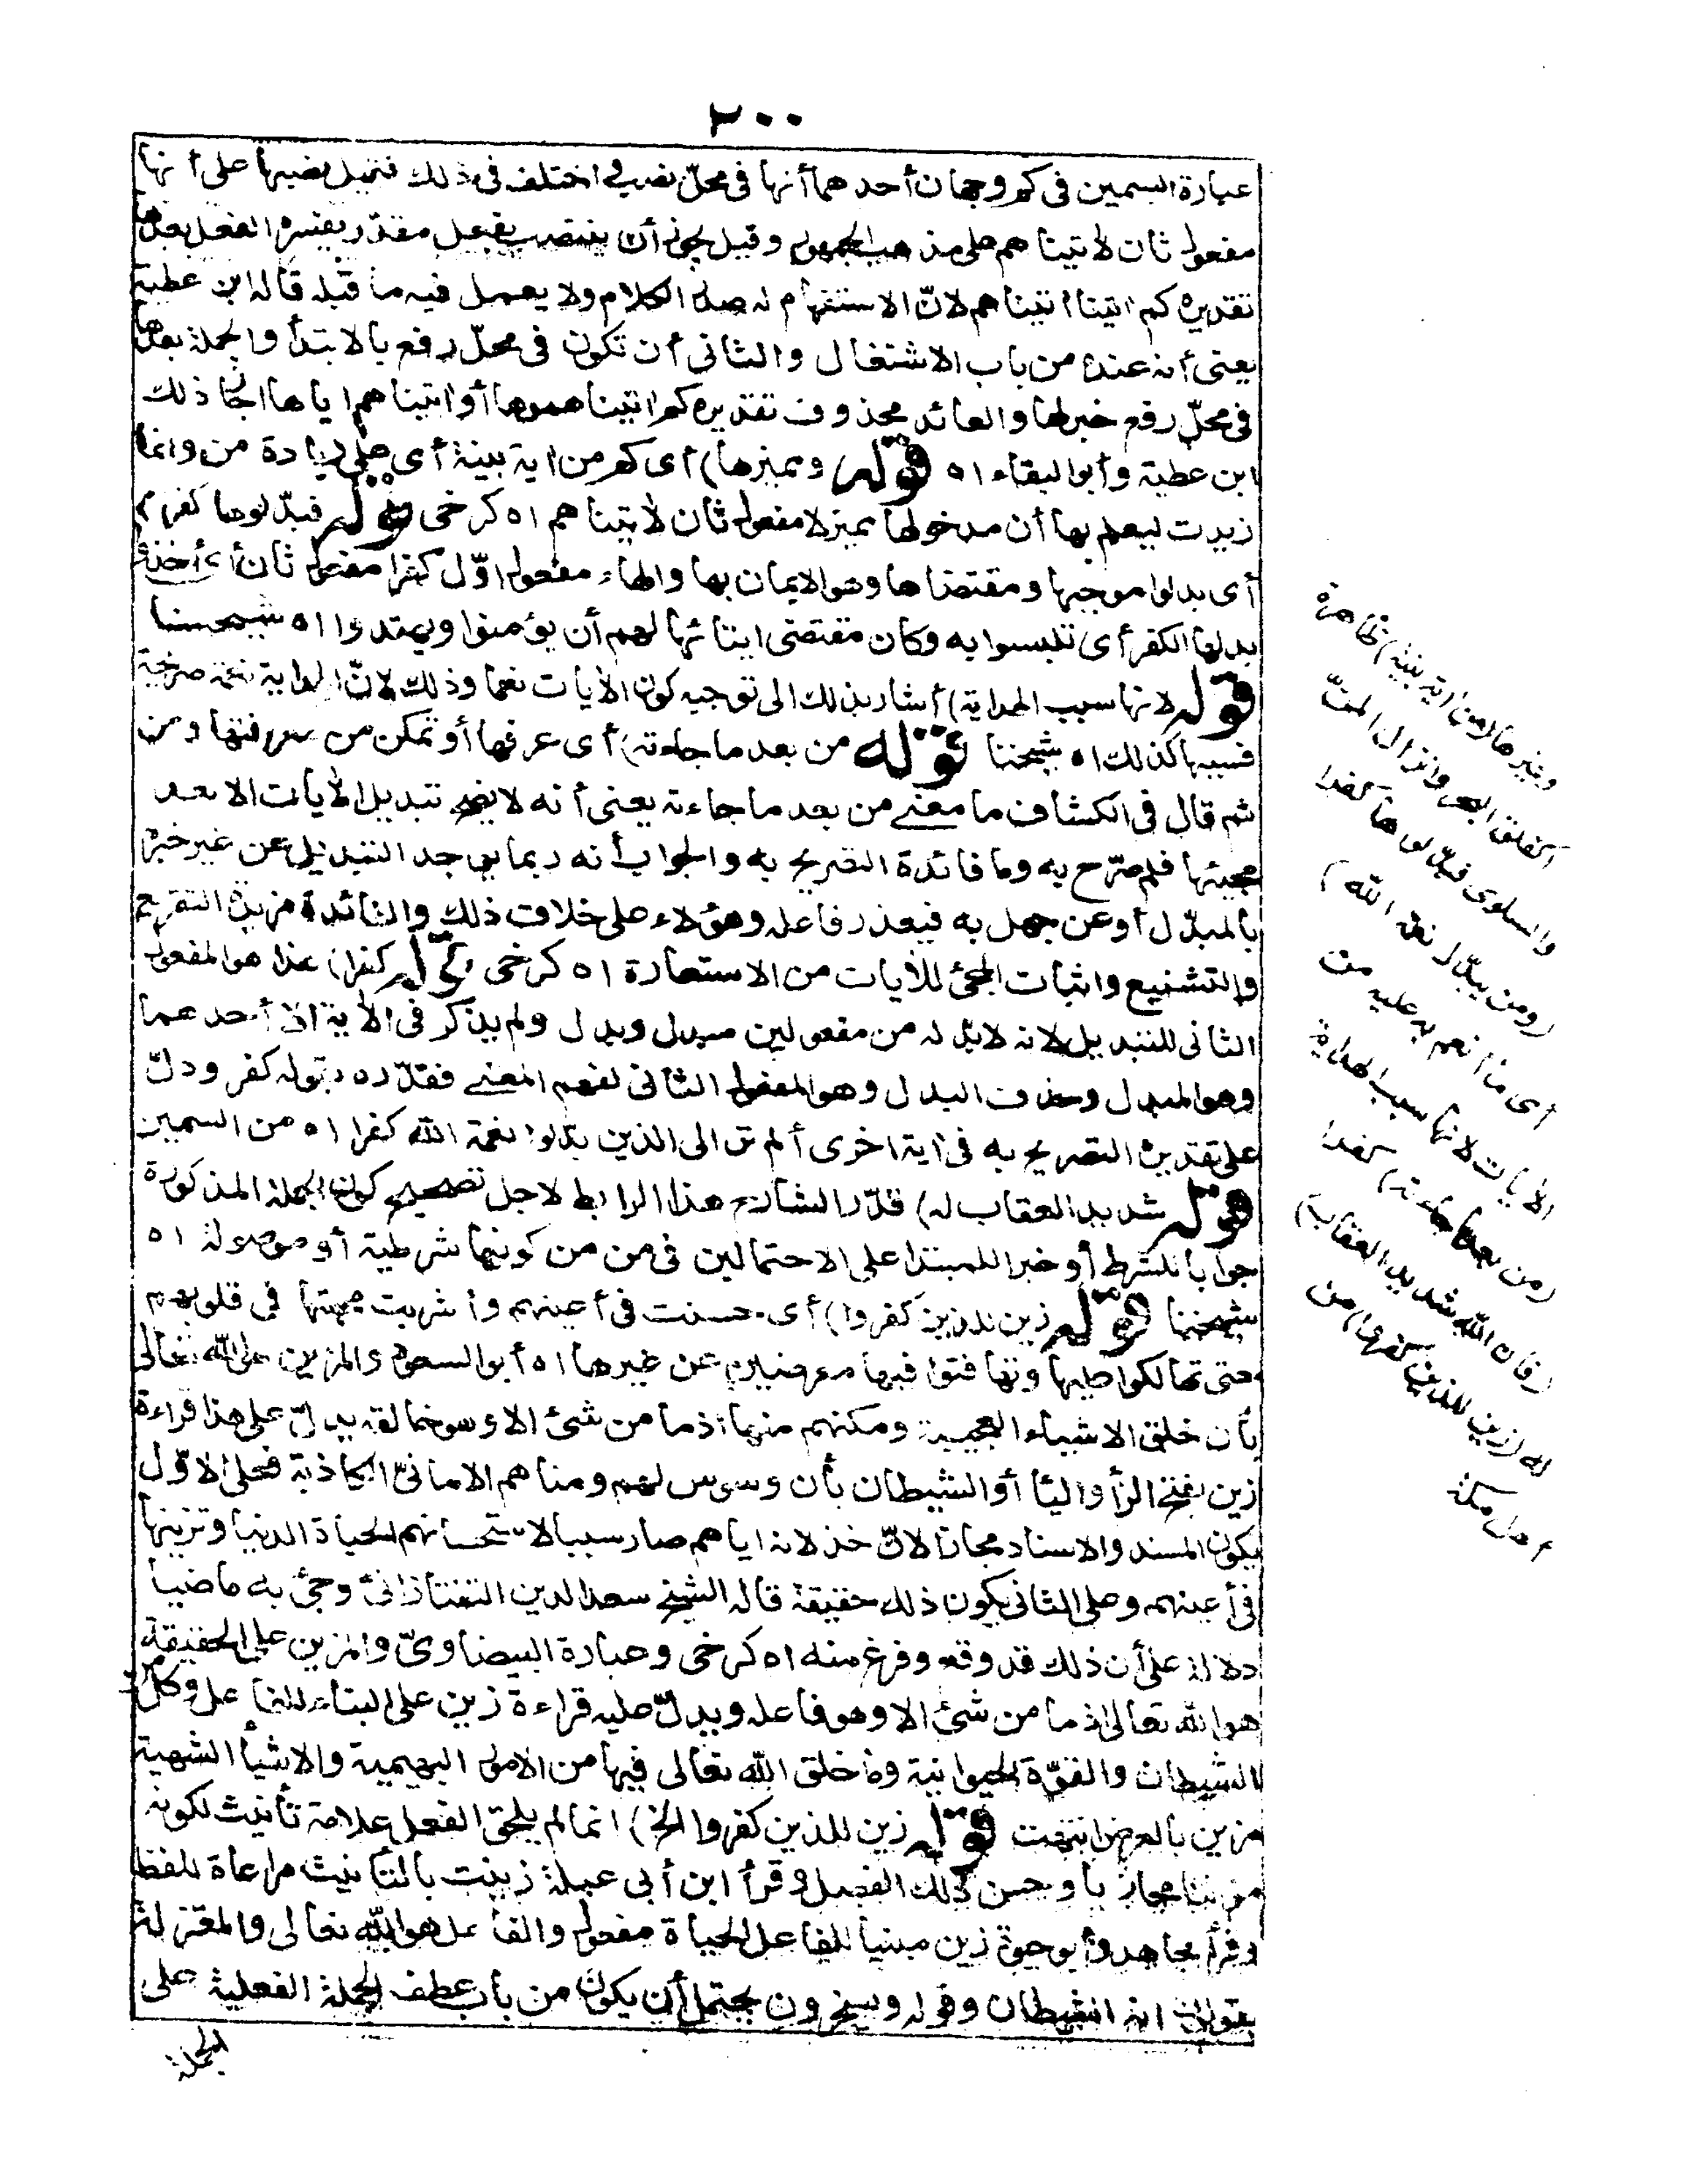 ٢٠٠
عبارة السمين في كم وجهان أحدهما أنها في محلّ نصب واختلف في ذلك فقيل نصبها على أنها
مفعول ثان لآتيناهم على مذهب الجمهور وقيل يجوز أن ينتصب بفعل مقدّر يفسره الفعل بعدها
تقديره كم اتينا اتيناهم لانّ الاستفهام له صدر الكلام ولا يعمل فيه ما قبله قاله ابن عطية
يعنى أنه عنده من باب الاشتغال والثانى أن تكون فى محلّ رفع بالابتدأ والجملة بعدها
فى محلّ رفع خبرلها والعائد محذوف تقديره كم اتيناهموها أو اتيناهم اياها اجاز ذلك
ابن عطية وأبو البقاء اه قوله ومميزها) أى كم من اية بينة أى على زيادة من وانما
زيدت ليعلم بها أن مدخولها مميز لا مفعول ثان لاتيناهم اه كرخى قوله فبدّلوها كفرا)
أى بدلوا موجبها ومقتضاها وهو الايمان بها والهاء مفعول اوّل كفرا مفعول ثان أى أخذوا
بدلها الكفر أى تلبسوا به وكان مقتضى ايتائها لهم أن يؤمنوا ويهتدوا اه شيخنا
قوله لانها سبب الهداية) أشار بذلك الى توجيه كون الأيات نعما وذلك لانّ الهداية نعمة صريحة
فسببها كذلك اه شيخنا قوله من بعد ما جاءته) أى عرفها أو تمكن من معرفتها ومن
ثم قال فى الكشاف ما معنى من بعد ما جاءته يعنى أنه لا يصح تبديل الأيات الا بعد
مجيئها فلم صرّح به وما فائدة التصريح به والجواب أنه ربما يوجد التبديل عن غير خبرة
بالمبدّل أو عن جهل به فيعذر فاعله وهؤلاء على خلاف ذلك والفائدة مزيد التقريع
والتشنيع واثبات المجئ للأيات من الاستعارة اه كرخى قوله كفرا) هذا هو المفعول
الثانى للتبديل لانه لابدّ له من مفعولين مبدل وبدل ولم يذكر فى الأية الا أحدهما
وهو المبدل وحذف البدل وهو المفعول الثانى لفهم المعنى فقدّره بقوله كفر ودلّ
على تقديره التصريح به فى اية اخرى ألم تر الى الذين بدّلوا نعمة الله كفرا اه من السمين
قوله شديد العقاب له) قدّر الشارح هذا الرابط لاجل تصحيح كون الجملة المذكورة
جوابا للشرط أو خبرا للمبتدا على الاحتمالين فى من من كونها شرطية أو موصولة اه
شيخنا قوله زين للذين كفروا) أى حسنت فى أعينهم وأشربت محبتها فى قلوبهم
حتى تهالكوا عليها وتهافتوا فيها معرضين عن غيرها اه أبو السعود والمزين هو الله تعالى
بأن خلق الاشياء العجيبة ومكنهم منها اذ ما من شئ الا وهو خالقه يدلّ على هذا قراءة
زين بفتح الزأ واليأ أو الشيطان بأن وسوس لهم ومناهم الامانىّ الكاذبة فعلى الاوّل
يكون المسند والاسناد مجازا لانّ خذلانه اياهم صار سببا لاستحسانهم الحياة الدنيا وتزينها
فى أعينهم وعلى الثانى يكون ذلك حقيقة قاله الشيخ سعد الدين التفتازانىّ وجئ به ماضيا
دلالة على أن ذلك قد وقع وفرغ منه اه كرخى وعبارة البيضاوىّ والمزين على الحقيقة
هو الله تعالى اذ ما من شئ الا وهو فاعله ويدلّ عليه قراءة زين على البناء للفاعل وكل من
الشيطان والقوّة الحيوانية وما خلق الله تعالى فيها من الامور البهيمية والاشيأ الشهية
مزين بالعرض انتهت قوله زين للذين كفروا الخ) انما لم يلحق الفعل علامة تأنيث لكونه
مؤنثا مجازيا وحسن ذلك الفصل وقرأ ابن أبى عبلة زينت بالتأنيث مراعاة للفظ
وقرأ مجاهد وأبو حيوة زين مبنيا للفاعل الحياة مفعول والفاعل هو الله تعالى والمعتزلة
يقولون انه الشيطان وقوله ويسخرون يحتمل أن يكون من باب عطف الجملة الفعلية على
الجملة
ومميزها (من اية بينة) ظاهرة
كفلق البحر وانزال المنّ
والسلوى فبدّلوها كفرا
(ومن يبدّل نعمة الله)
أى ما انعم به عليه من
الأيات لانها سبب الهداية
(من بعد ما جاءته) كفرا
(فان الله شديد العقاب)
له (زين للذين كفروا) من
أهل مكة